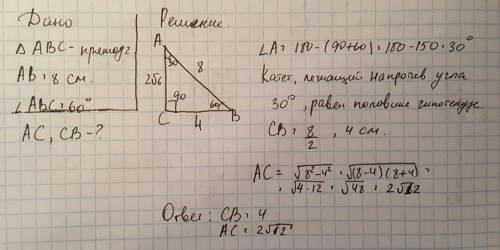 Дано
Δ ABC - прямоуг.
AB = 8 см.
∠ABC = 60°
AC, CB - ?
Решение.
A
30
8
2√6
90
60°
C
4
B
∠A = 180 - (90+60) = 180 - 150 = 30°
Катет, лежащий напротив угла
30°, равен половине гипотенузе.
CB = 8/2 = 4 см.
AC = √8²-4² = √(8-4)(8+4) =
= √4·12 = √48 = 2√12
Ответ: CB = 4
AC = 2√12